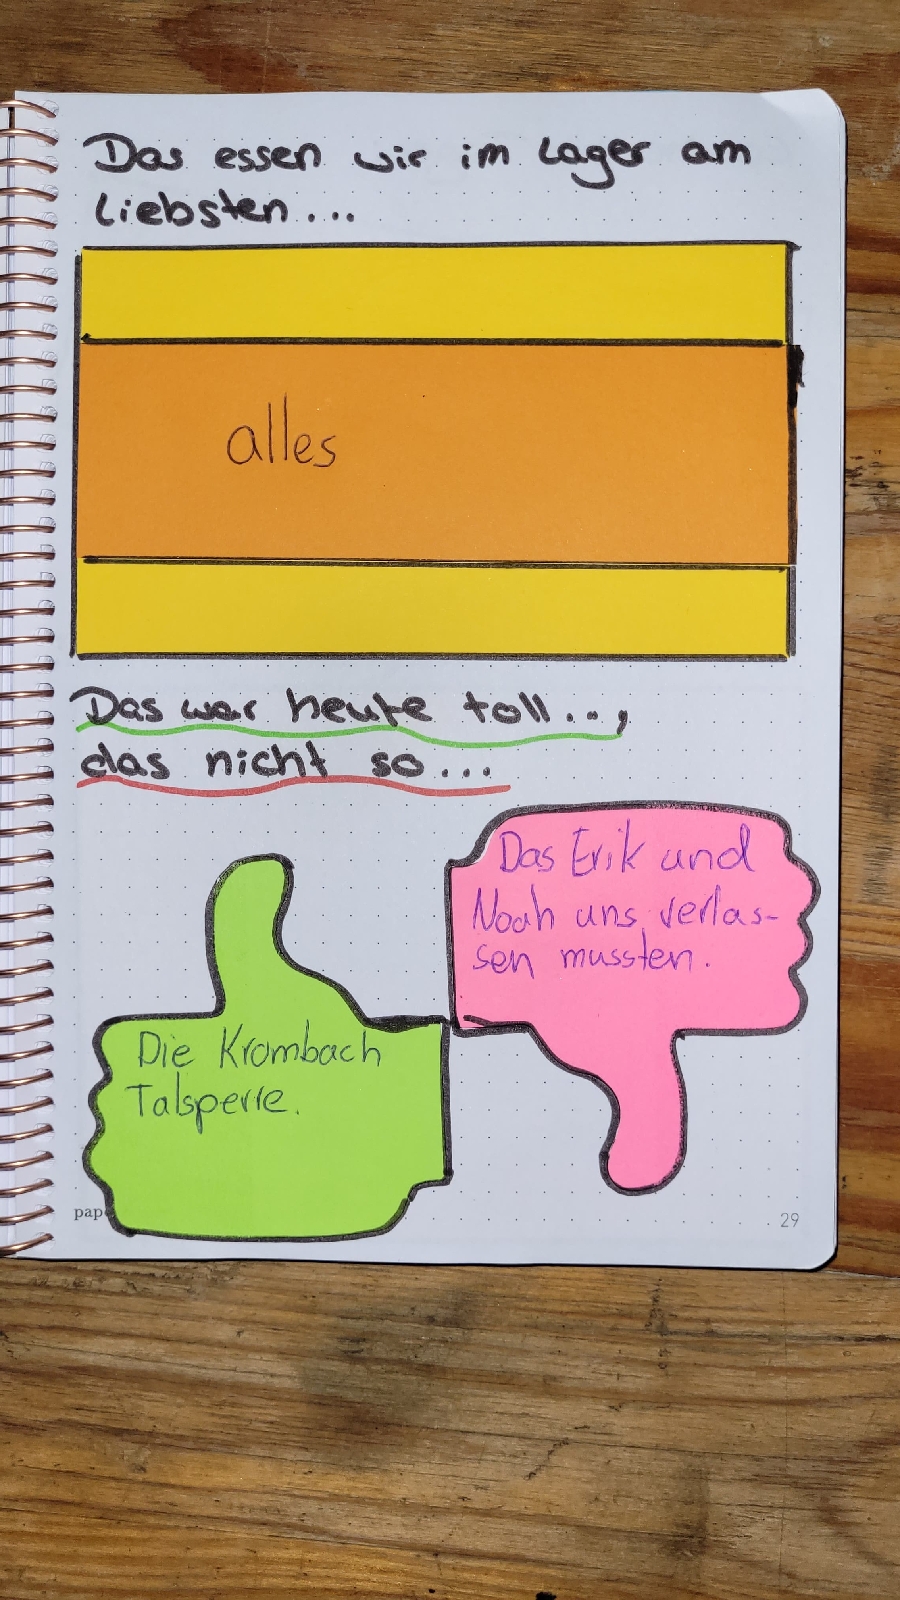 Das essen wir im Lager am
Liebsten....
alles
Das war heute toll...,
das nicht so...
Das Erik und
Noah uns verlas-
sen mussten.
Die Krombach
Talsperre.
pap
29